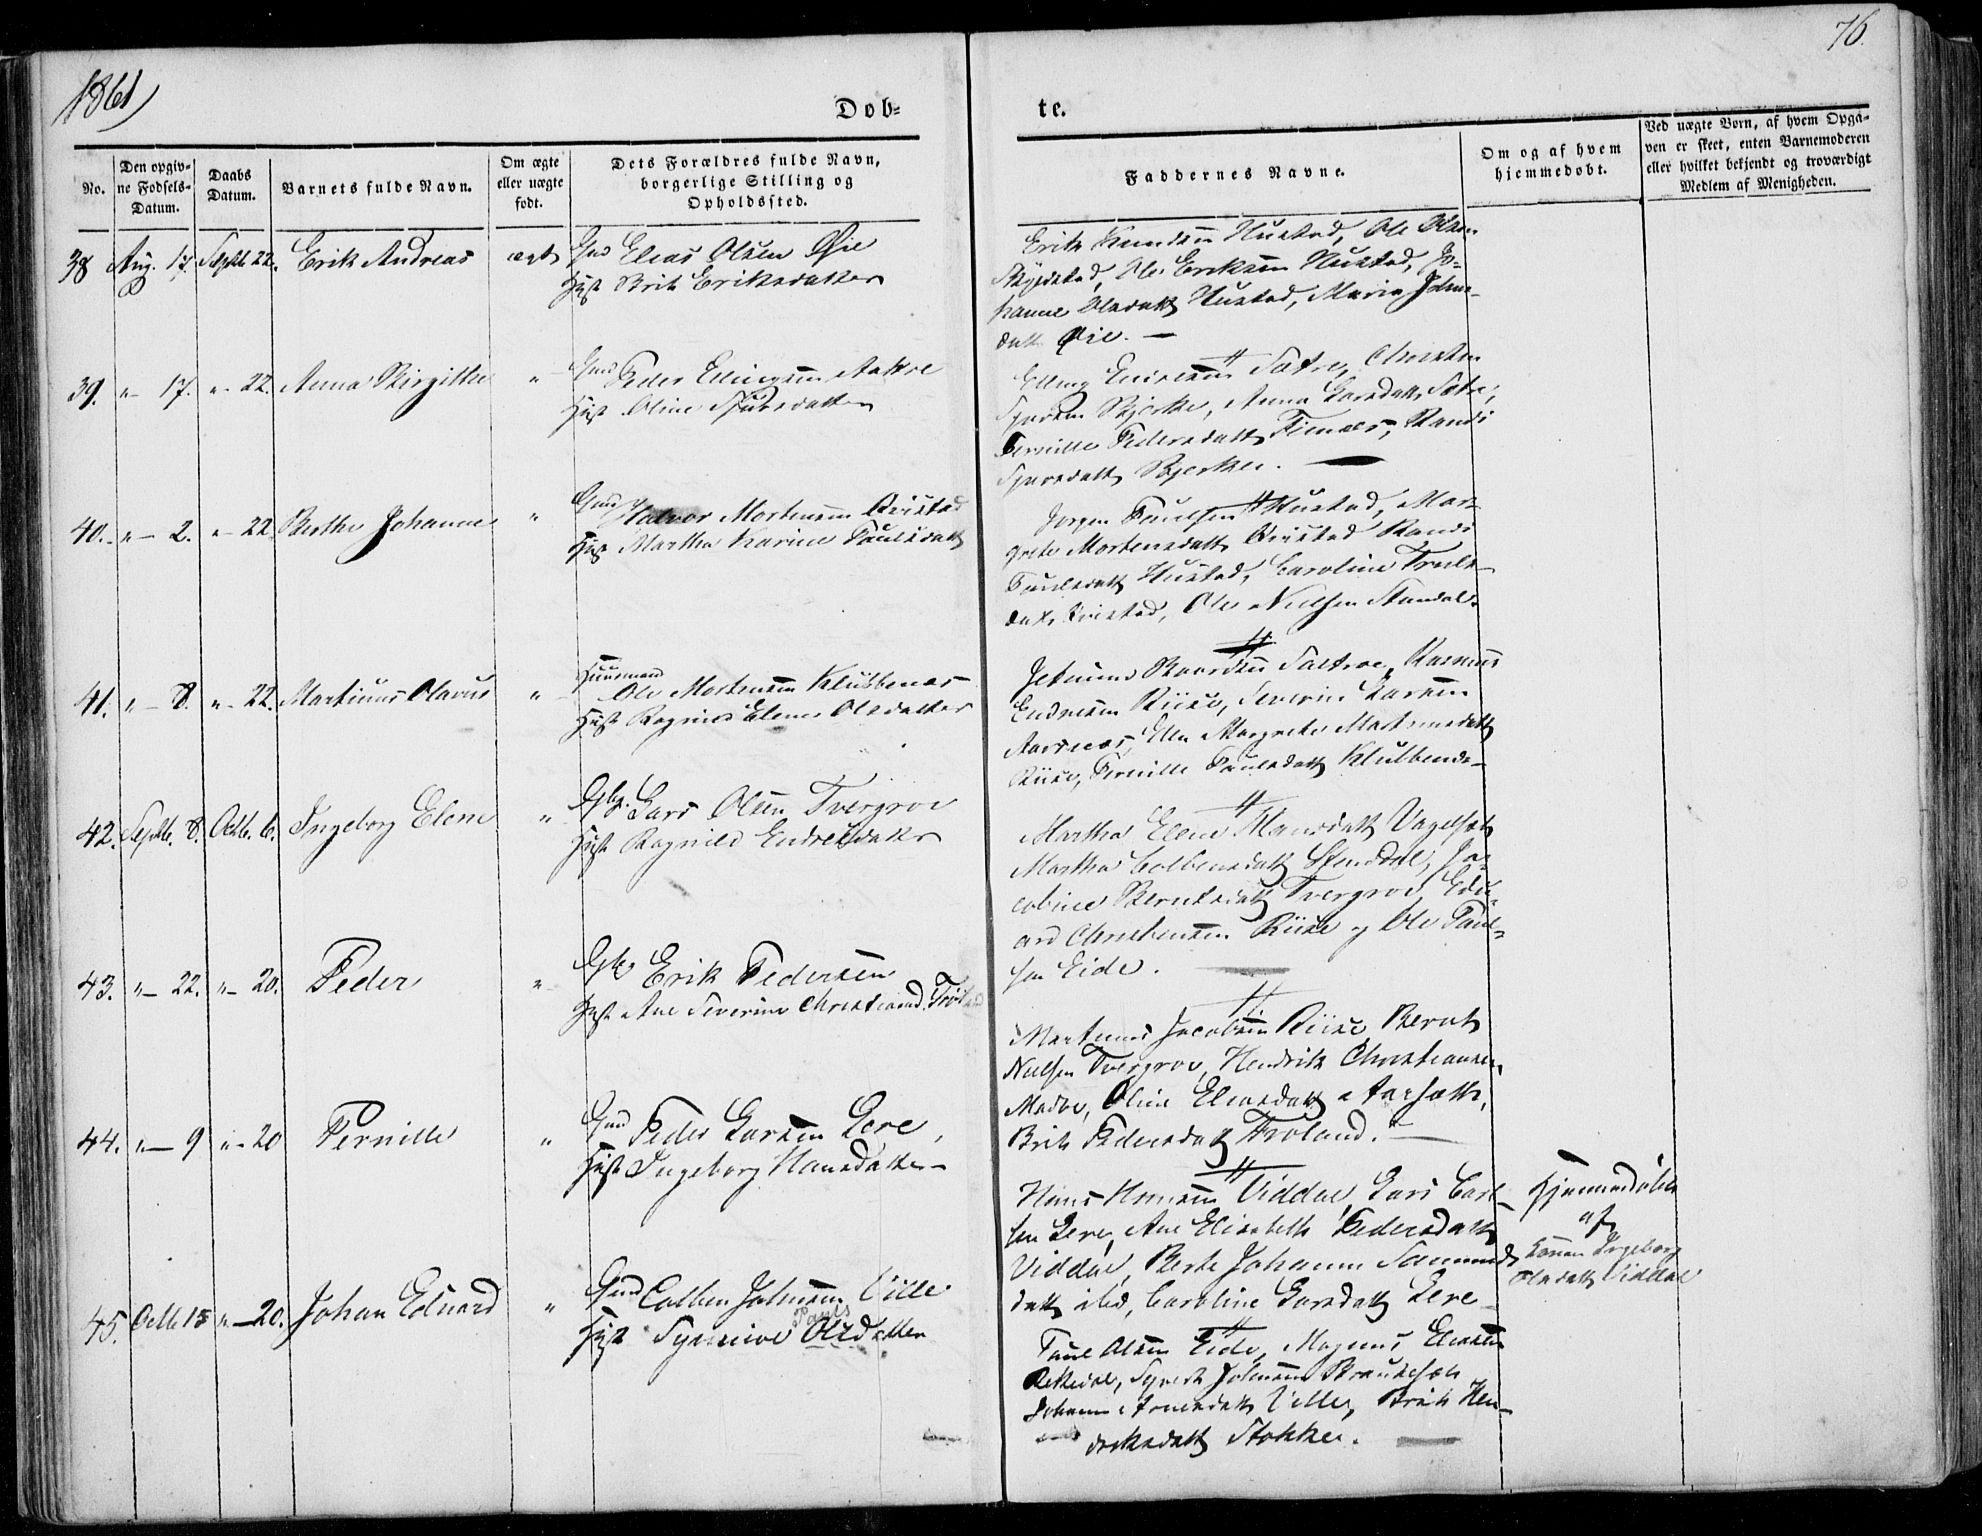 1861
76.
Døb=
te.
No.
Den opgiv-
ne Fødsels-
Datum.
Daabs
Datum.
Barnets fulde Navn.
Om ægte
eller uægte
født.
Dets Forældres fulde Navn,
borgerlige Stilling og
Opholdssted.
Faddernes Navne.
Om og af hvem
hjemmedøbt.
Ved uægte Børn, af hvem Opga-
ven er skeet, enten Barnemoderen
eller hvilket bekjendt og troværdigt
Medlem af Menigheden.
38 Aug. 17. Septb 22. Erik Andreas ægte Gmd Elias Olsen Øie
Hust Brit Eriksdatter
Erik Knudsen Hustad, Ole Olsen
Ole Eriksen Hustad, Jo-
hanne Olsdatt Hustad, Maria
datt Øie. —
39. " 17. " 22. Anna Birgitthe " Gmd Peder Ellingsen Aakre
Hust Oline Sjursdatter
Elling Sætre, Christen
Sjursen Bjerke, Anna Larsdatt Sætre,
Pernille Pedersdatt, Randi
Sjursdatt Bjerke. —
40. " 2. " 22 Berthe Johanne " Gmd Halvor Mortensen Qvistad
Hust Martha Karine Paulsdatt
Jørgen Paulsen Hustad, Mar-
grete Mortensdatt Qvistad Randi
Paulsdatt Hustad, Caroline
datt Qvistad, Ole Nielsen Standal.
41. " 8. " 22. Martinus Olavus " Huusmand
Ole Mortensen Klubbenes
Hust Ragnild Elene Olsdatter
Rasmus
Endresen Riise, Severin Larsen
Aarsnes, Elen Margrete Martinusdatt
Riise, Pernille Paulsdatt Klubbenes
42. Septb. 8. Octb. 6. Ingeborg Elene " Gbr. Lars Olsen Tvergrov
Hust Ragnild Endresdatter
Martha Elene Hansdatt
Martha Colbensdatt Standal, Ja-
cobine Berntsdatt Tvergrov, Edv-
ard Christensen Riise og Ole Paul-
sen Eide.
43. " 22. " 20. Peder " Gbr Erik Pedersen
Hust Ane Severine Christiansd.
Martinus Jacobsen Riise Bernt
Nielsen Tvergrov, Hendrik Christiansen
Madvo, Oline Eliasdatt Aarsæth,
Brit Pedersdatt Troland. —
44. " 9 " 20 Pernille " Gmd Peder Larsen Lere,
Hust Ingeborg Hansdatter
Hans Hansen Viddal, Lars Carl-
sen Lere, Ane Elisabeth Pedersdatt
Viddal, Berte Johanne
datt ibid, Caroline Larsdatt Lere
Hjemmedøbt
af
Konen Ingeborg
Olsdatt Viddal
45. Octb 13 " 20. Johan Edvard " Gmd Colben Johnsen Ville
Pauls
Hust Synnive Olsdatter
Paul Olsen Eide, Magnus Eliassen
Rekkedal, Syvert Johnsen
Johanne Arnesdatt Ville, Brit Hen-
driksdatt Stokke.